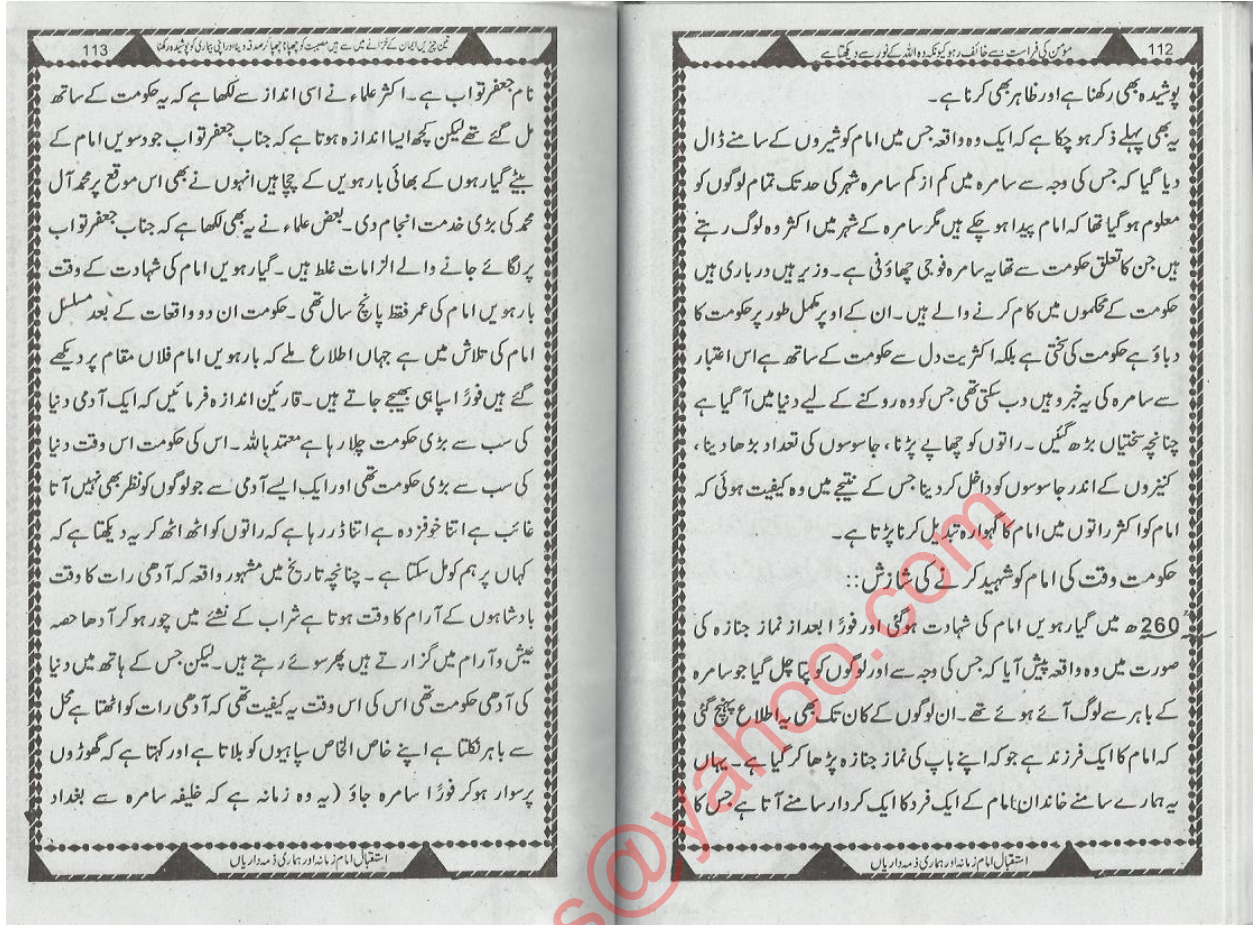 112
مؤمن کی فراست سے خائف رہو کیونکہ وہ اللہ کے نور سے دیکھتا ہے
پوشیدہ بھی رکھنا ہے اور ظاہر بھی کرنا ہے۔
یہ بھی پہلے ذکر ہو چکا ہے کہ ایک وہ واقعہ جس میں امام کو شیروں کے سامنے ڈال
دیا گیا کہ جس کی وجہ سے سامرہ میں کم از کم سامرہ شہر کی حد تک تمام لوگوں کو
معلوم ہو گیا تھا کہ امام پیدا ہو چکے ہیں مگر سامرہ کے شہر میں اکثر وہ لوگ رہتے
ہیں جن کا تعلق حکومت سے تھا یہ سامرہ فوجی چھاؤنی ہے۔ وزیر ہیں درباری ہیں
حکومت کے محکموں میں کام کرنے والے ہیں۔ ان کے اوپر مکمل طور پر حکومت کا
دباؤ ہے حکومت کی سختی ہے بلکہ اکثریت دل سے حکومت کے ساتھ ہے اس اعتبار
سے سامرہ کی یہ خبر وہیں دب سکتی تھی جس کو وہ روکنے کے لیے دنیا میں آ گیا ہے
چنانچہ سختیاں بڑھ گئیں۔ راتوں کو چھاپے پڑنا، جاسوسوں کی تعداد بڑھا دینا،
کنیزوں کے اندر جاسوسوں کو داخل کر دینا جس کے نتیجے میں وہ کیفیت ہوئی کہ
امام کو اکثر راتوں میں امام کا گہوارہ تبدیل کرنا پڑتا ہے۔
حکومت وقت کی امام کو شہید کرنے کی شازش::
260ھ میں گیارہویں امام کی شہادت ہو گئی اور فورًا بعد از نماز جنازہ کی
صورت میں وہ واقعہ پیش آیا کہ جس کی وجہ سے اور لوگوں کو پتا چل گیا جو سامرہ
کے باہر سے لوگ آئے ہوئے تھے۔ ان لوگوں کے کان تک بھی یہ اطلاع پہنچ گئی
کہ امام کا ایک فرزند ہے جو کہ اپنے باپ کی نماز جنازہ پڑھا کر گیا ہے۔ یہاں
یہ ہمارے سامنے خاندان امام کے ایک فرد کا ایک کردار سامنے آتا ہے جس کا
استقبال امام زمانہ اور ہماری ذمہ داریاں
113
تین چیزیں ایمان کے خزانے میں سے ہیں مصیبت کو چھپانا چھپا کر صدقہ دینا اور اپنی بیماری کو پوشیدہ رکھنا
نام جعفر تواب ہے۔ اکثر علماء نے اسی انداز سے لکھا ہے کہ یہ حکومت کے ساتھ
مل گئے تھے لیکن کچھ ایسا اندازہ ہوتا ہے کہ جناب جعفر تواب جو دسویں امام کے
بیٹے گیارہوں کے بھائی بارہویں کے چچا ہیں انہوں نے بھی اس موقع پر محمد آل
محمد کی بڑی خدمت انجام دی۔ بعض علماء نے یہ بھی لکھا ہے کہ جناب جعفر تواب
پر لگائے جانے والے الزامات غلط ہیں۔ گیارہویں امام کی شہادت کے وقت
بارہویں امام کی عمر فقط پانچ سال تھی۔ حکومت ان دو واقعات کے بعد مسلسل
امام کی تلاش میں ہے جہاں اطلاع ملے کہ بارہویں امام فلاں مقام پر دیکھے
گئے ہیں فورًا سپاہی بھیجے جاتے ہیں۔ قارئین اندازہ فرمائیں کہ ایک آدمی دنیا
کی سب سے بڑی حکومت چلا رہا ہے معتمد باللہ۔ اس کی حکومت اس وقت دنیا
کی سب سے بڑی حکومت تھی اور ایک ایسے آدمی سے جو لوگوں کو نظر بھی نہیں آتا
غائب ہے اتنا خوفزدہ ہے اتنا ڈر رہا ہے کہ راتوں کو اٹھ اٹھ کر یہ دیکھتا ہے کہ
کہاں پر ہم کو مل سکتا ہے۔ چنانچہ تاریخ میں مشہور واقعہ کہ آدھی رات کا وقت
بادشاہوں کے آرام کا وقت ہوتا ہے شراب کے نشئے میں چور ہو کر آدھا حصہ
عیش و آرام میں گزارتے ہیں پھر سوئے رہتے ہیں۔ لیکن جس کے ہاتھ میں دنیا
کی آدھی حکومت تھی اس کی اس وقت یہ کیفیت تھی کہ آدھی رات کو اٹھتا ہے محل
سے باہر نکلتا ہے اپنے خاص الخاص سپاہیوں کو بلاتا ہے اور کہتا ہے کہ گھوڑوں
پر سوار ہو کر فورًا سامرہ جاؤ (یہ وہ زمانہ ہے کہ خلیفہ سامرہ سے بغداد
استقبال امام زمانہ اور ہماری ذمہ داریاں
s@yahoo.com